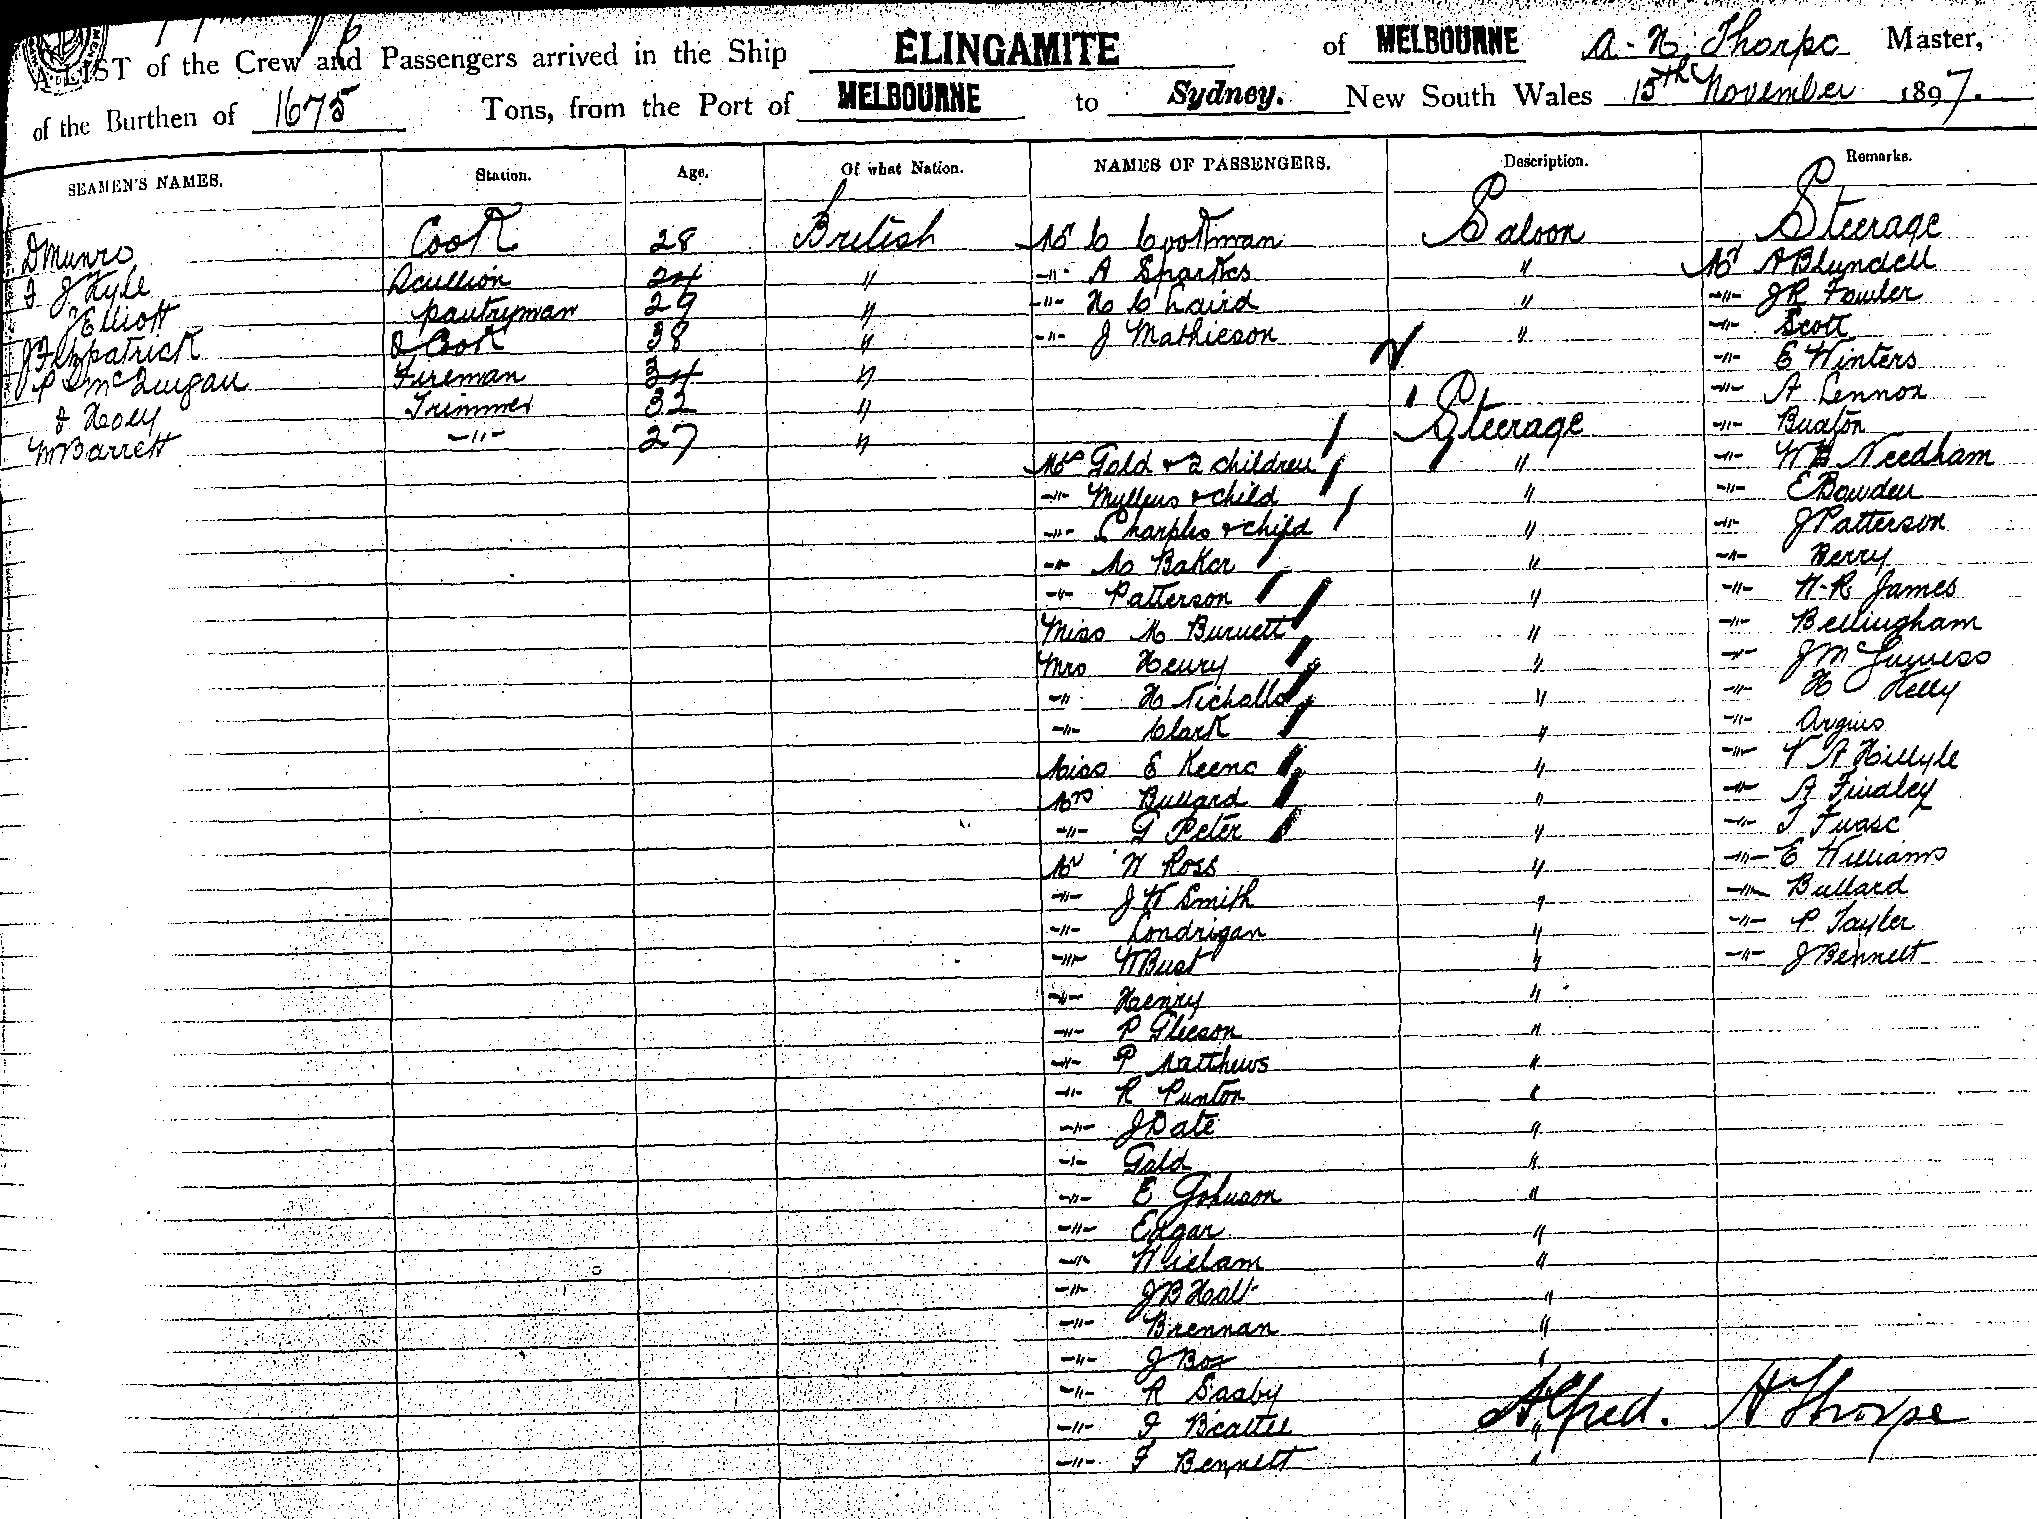 A LIST of the Crew and Passengers arrived in the Ship ELINGAMITE of MELBOURNE A. H. Thorpe Master,
of the Burthen of 1675 Tons, from the Port of MELBOURNE to Sydney. New South Wales 15th November 1897.
SEAMEN'S NAMES. Station. Age. Of what Nation. NAMES OF PASSENGERS. Description. Remarks.
D Munro Cook 28 British Mr C Cookman Saloon Steerage
F J Kyle Scullion 24 " -"- A Sparkes " Mr A Blundell
J Elliott pantryman 29 " -"- H C Laird " -"- J R Fowler
J Fitzpatrick 2 Cook 38 " -"- J Mathieson " -"- Scott
P McGuigan Fireman 34 " -"- E Winters
Trimmer 32 " -"- A Lennon
M Barrett -"- 27 " Steerage -"- Buxton
Mrs Gald & 2 children " -"- W B Needham
-"- Mullens & child " -"- E Bowden
-"- Sharples & child " -"- J Patterson
-"- M Baker " -"- Berry
-"- Patterson " -"- H.R James
Miss M Burnett " -"- Bellingham
Mrs Henry " -"- J McGuiness
-"- H Nicholls " -"- H Kelly
-"- Clark " -"- Argus
Miss E Keene " -"- V A Hillyle
Mrs Bullard " -"- A Findley
-"- G Peter " -"-
Mr W Ross " -"- E Williams
-"- J W Smith " -"- Bullard
-"- Londrigan " -"- P Tayler
-"- W Bust " -"- J Bennett
-"- Henry "
-"- P Gleeson "
-"- P Matthews "
-"- R Punton "
-"- J Date "
-"- Gald "
-"- E Johnson "
-"- Edgar "
-"- Wielam "
-"- J B Hall "
-"- Brennan "
-"- J Box "
-"- R Saaby " Alfred. H Thorpe
-"- F Beattie "
-"- F Bennett "